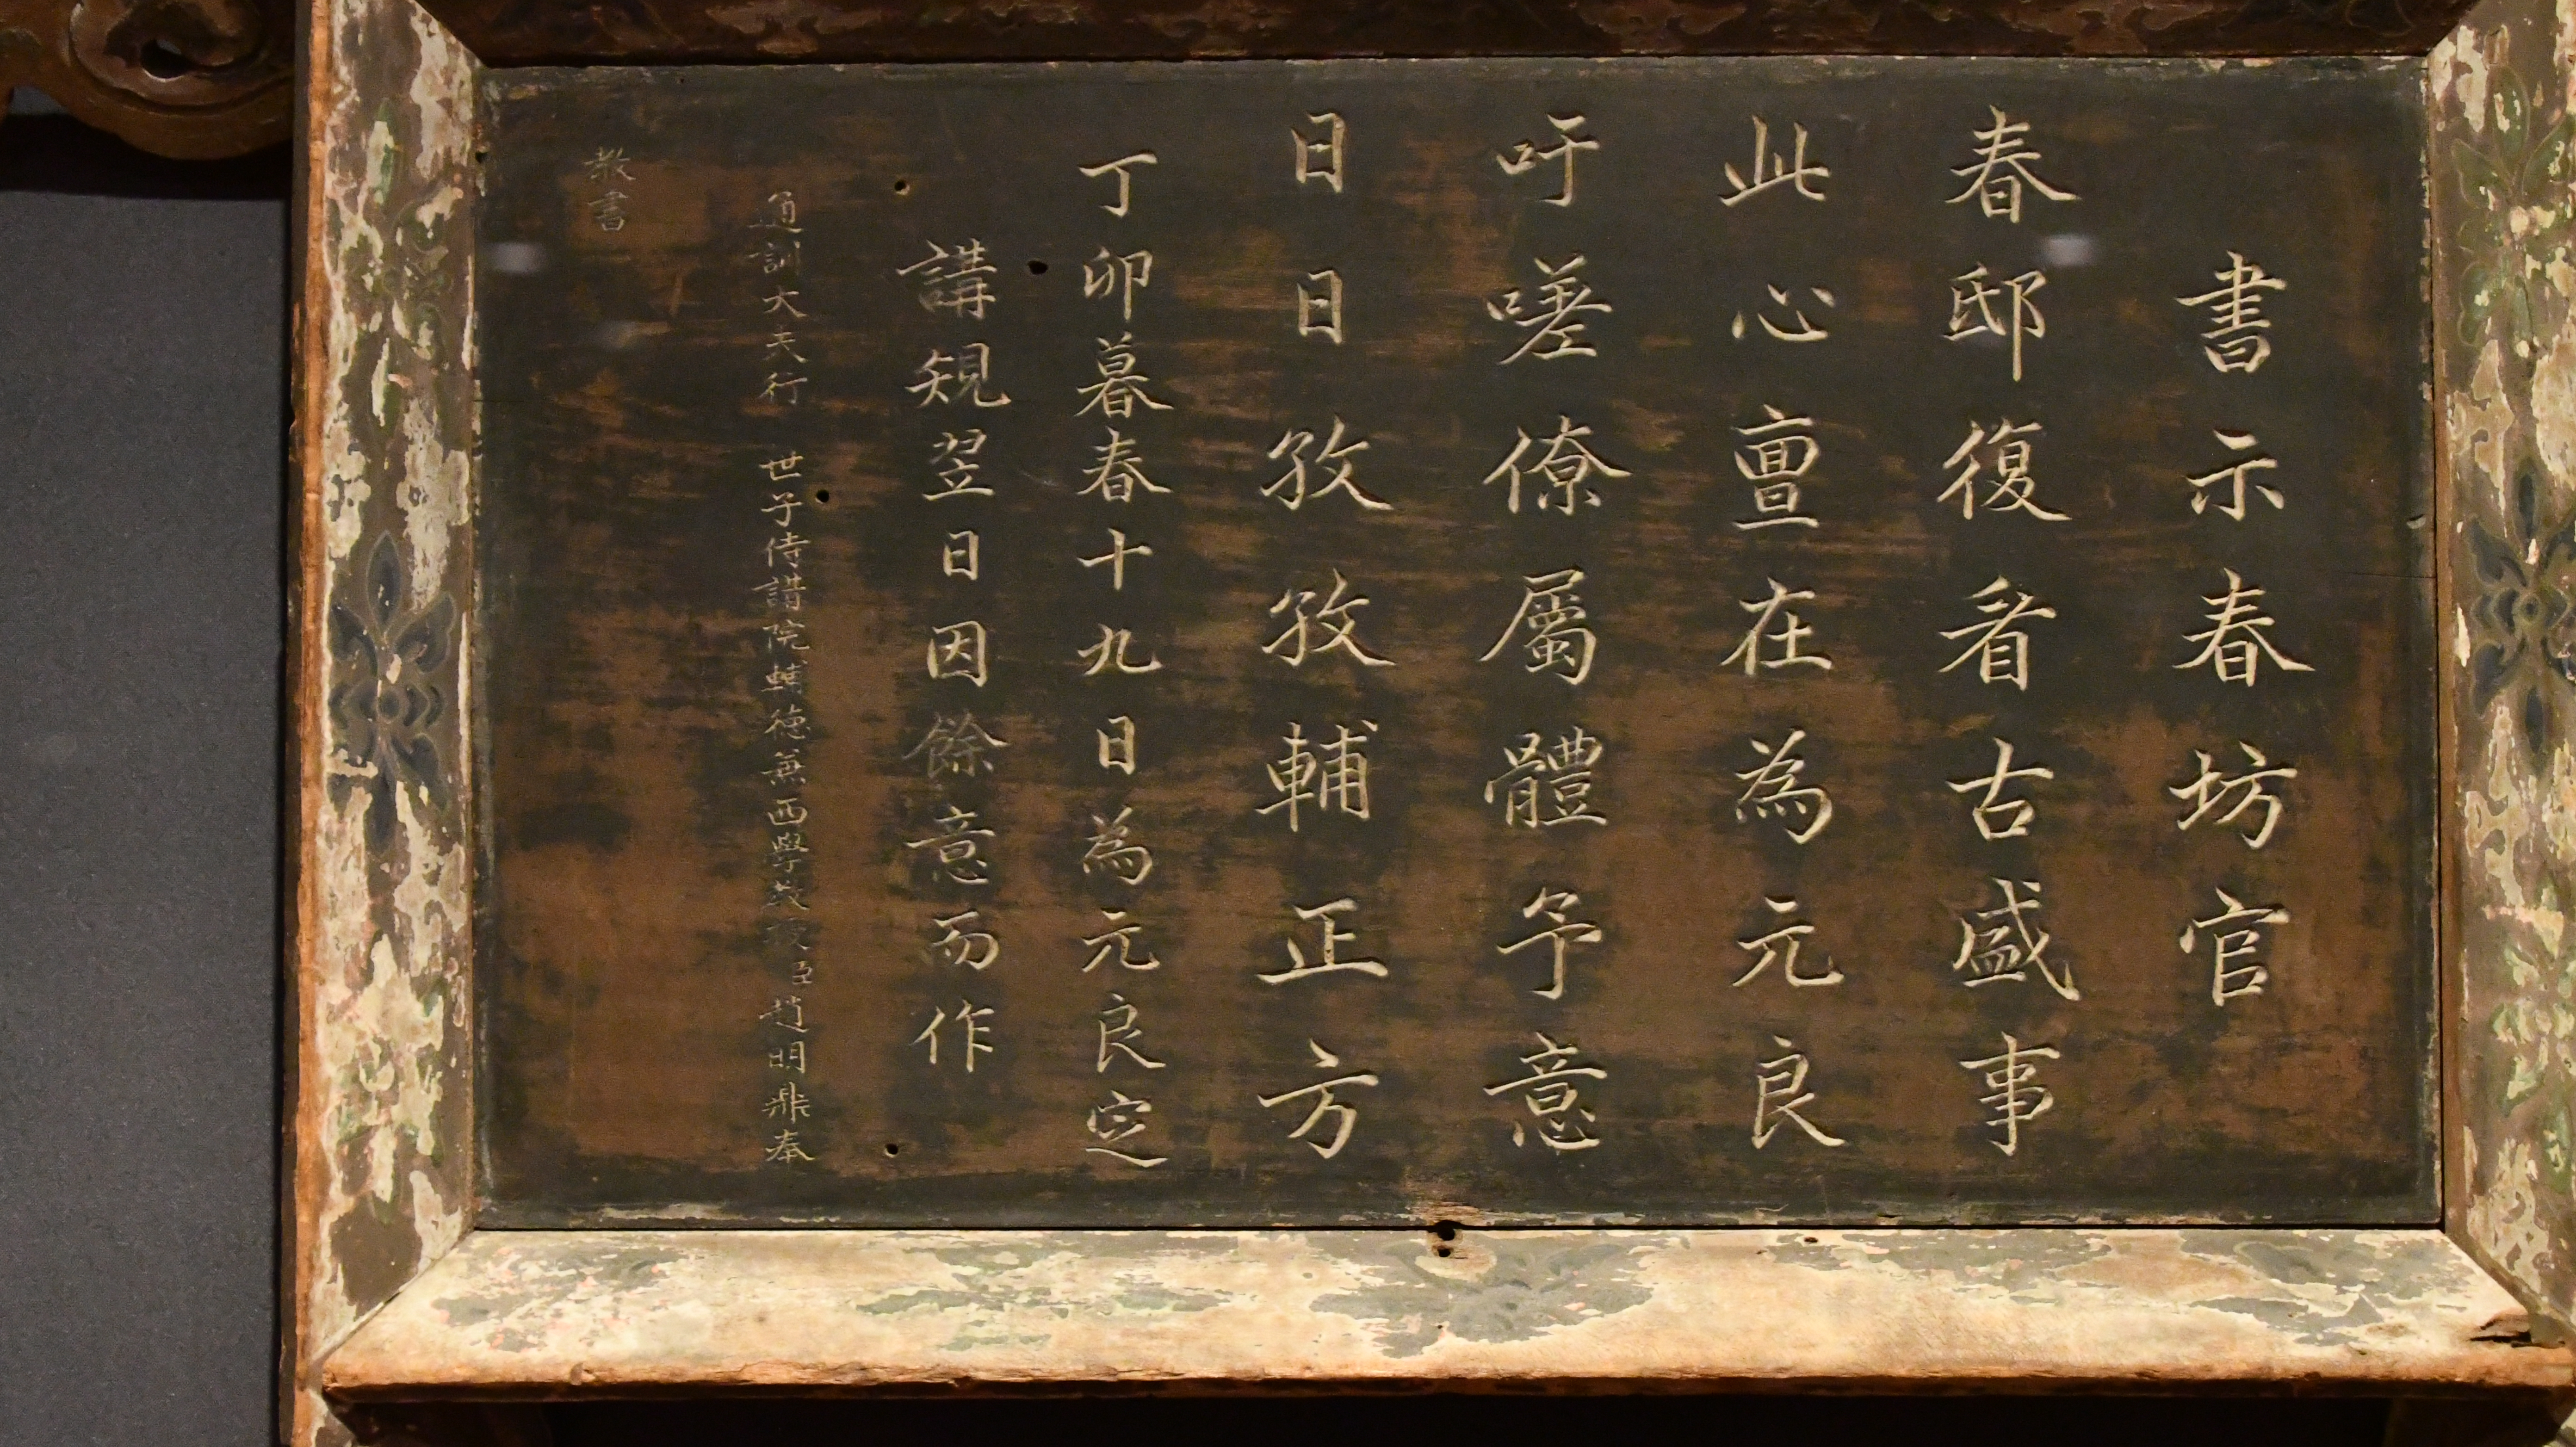 書示春坊官
春邸復看古盛事
此心亶在為元良
吁嗟僚屬體予意
日日孜孜輔正方
丁卯暮春十九日為元良定
講規翌日因餘意而作
通訓大夫行 世子侍講院輔德兼西學教授臣趙明鼎奉
教書